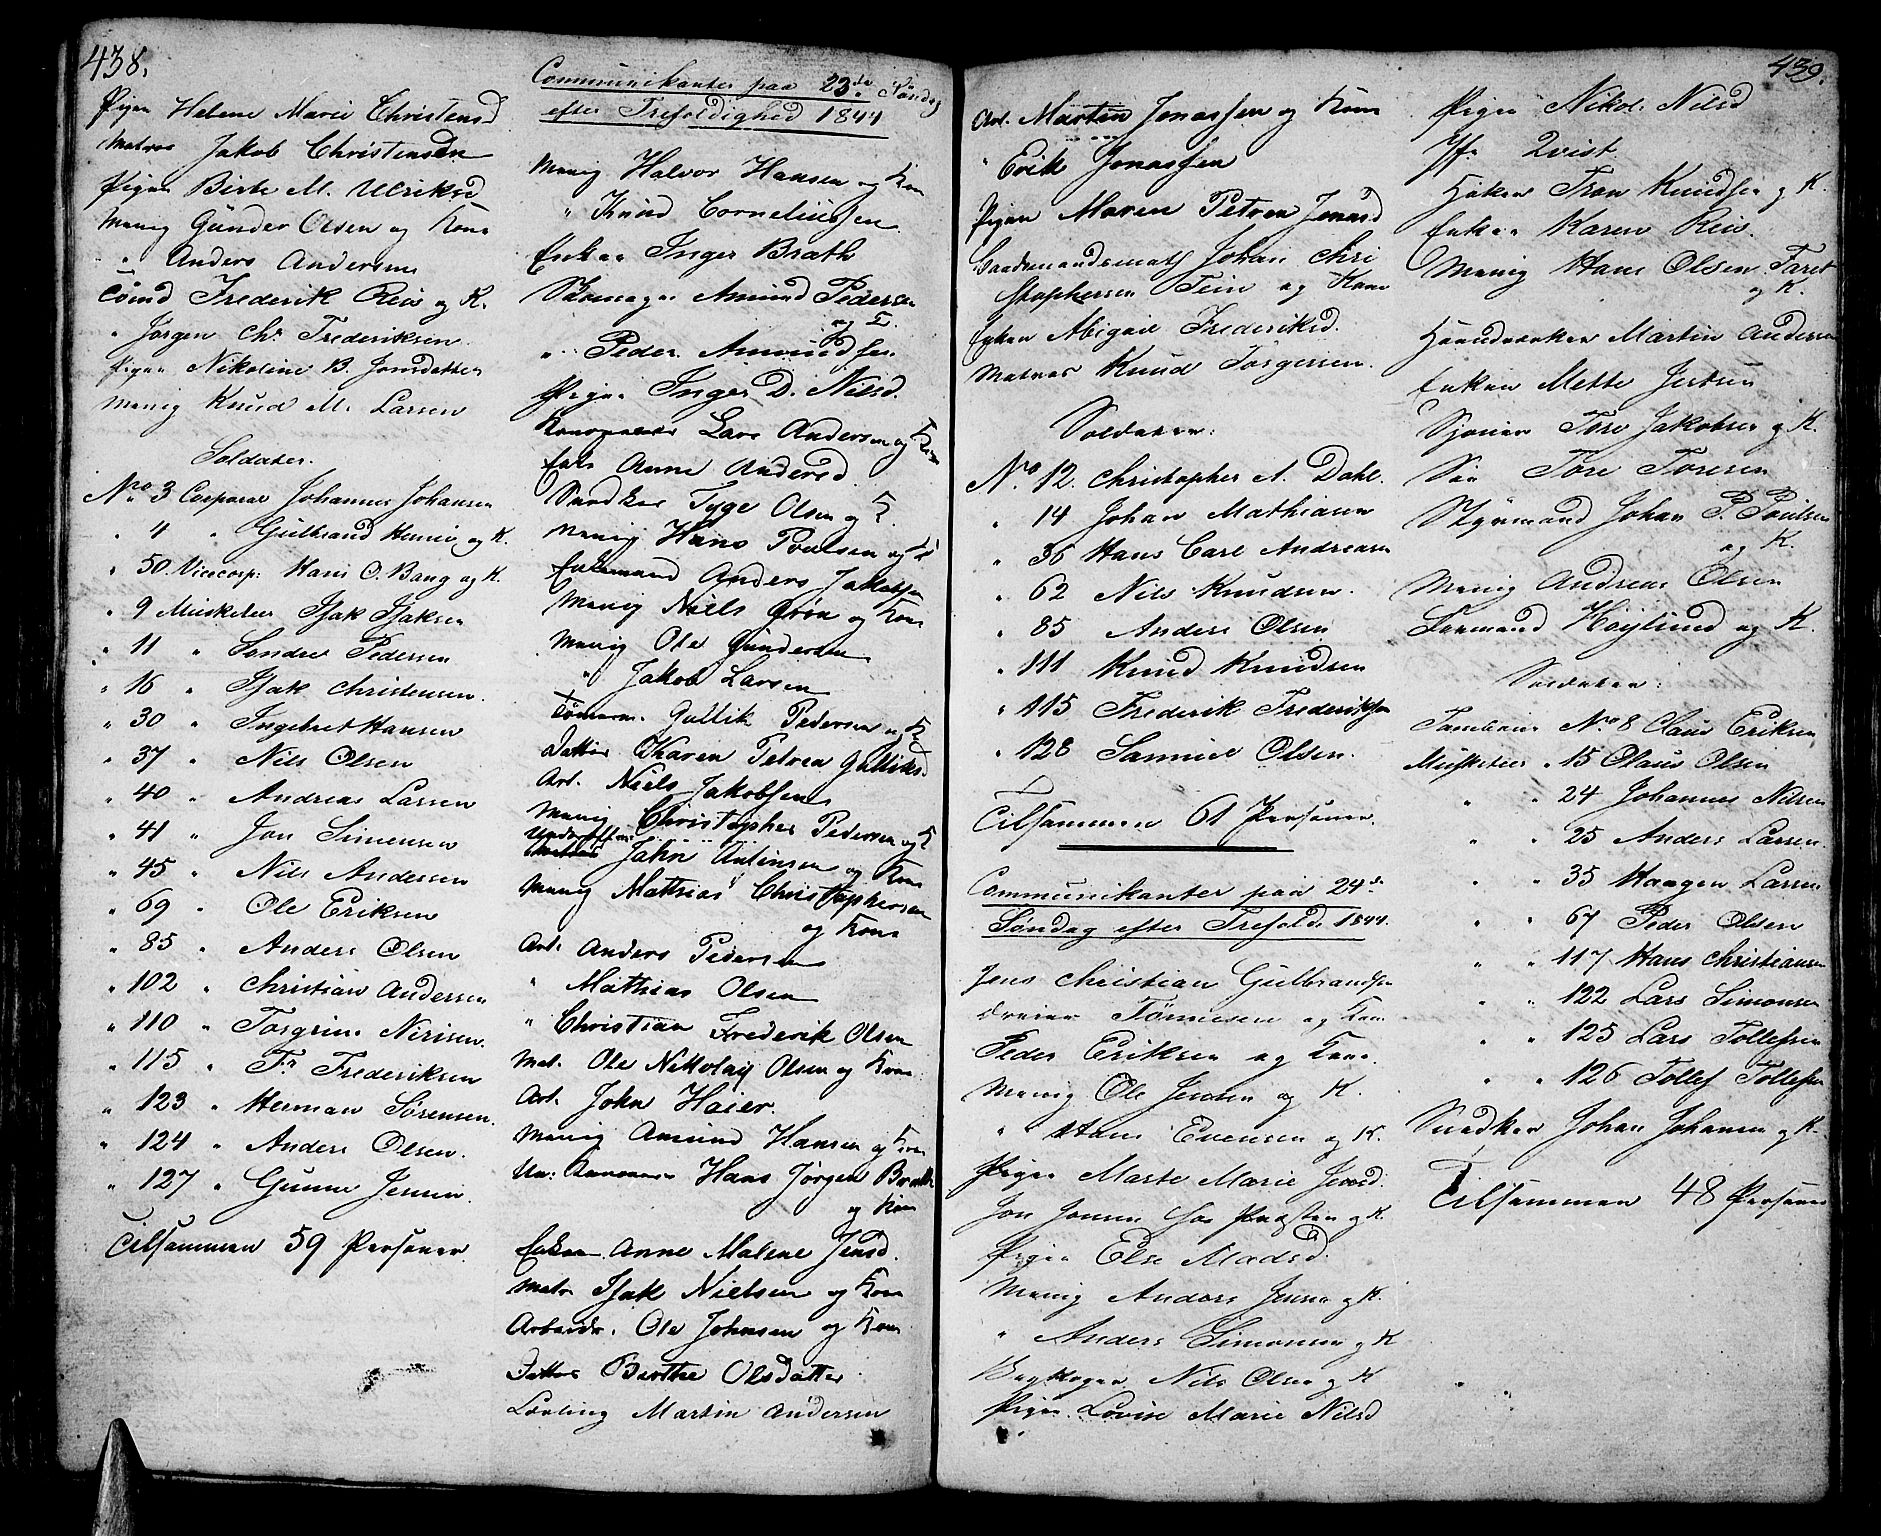 438.
Pigen Helene Marie Christensd
Matros Jakob Christensen
Pigen Birte M. Ulriksd
Menig Gunder Olsen og Kone
" Anders Andersen
Tømd Frederik Reis og K.
" Jørgen Chr. Frederiksen.
Pigen Nikoline B. Jonsdatter
Menig Knud M. Larsen
Soldater.
No 3 Corporal Johannes Johansen
" 4 " Gulbrand og K.
" 50 Vicecorp: Hans O. Bang og K.
" 9 Musketeer Isak Isaksen
" 11 " Sondre Pedersen
" 16 " Isak Christensen.
" 30 " Ingebret Hansen
" 37 " Nils Olsen
" 40 " Andreas Larsen
" 41 " Jon Simensen
" 45 " Nils Andersen
" 69 " Ole Eriksen
" 85 " Anders Olsen
" 102 " Christian Andersen
" 110 " Torgrim Nirisen.
" 115 " Fr Frederiksen
" 123 " Herman Sørensen.
" 124 " Anders Olsen.
" 127 " Gunne Jensen.
Tilsammen 59 Personer.
Communikanter paa 23de Søndag
efter Trefoldighed 1844
Menig Halvor Hansen og Kone
" Knud Corneliussen.
Enken Inger Brath
Skomager Amund Pedersen
og K.
" Peder Amundsen
Pigen Inger D. Nilsd.
Lars Andersen og Kone
Enke Anne Andersd
Snedker Tyge Olsen og K.
Menig Hans Poulsen og K
Enkemand Anders Jakobsen
Menig Niels Gron og Kone
Menig Ole Gundersen
" Jakob Larsen
Tømm. Gullik Pedersen og K
Datter Karen Petrea Gulliksd
Arb. Niels Jakobsen
Menig Christopher Pedersen og K
Underoff. John Antonsen og Kone
Menig Mathias Christophersen
og Kone
Arb. Anders Pedersen
" Mathias Olsen
" Christian Frederik Olsen
Mat. Ole Nikolay Olsen og Kone
Arb. John Haier.
Menig Amund Hansen og Kone
Un: Hans Jørgen
og Kone
Enken Anne Malene Jensd.
Matr Isak Nielsen og Kone
Arbeidr. Ole Johnsen og Kone
Datter Berthe Olsdatter
Lærling Martin Andersen
439.
Arb. Martin Jonassen og Kone
" Erik Jonassen
Pigen Maren Petrea Jonasd
Baadsmandsmath Johan Chri
stophersen Tein og Kone
Enken Abigael Frederiksd.
Matros Knud Torgersen.
Soldater.
No. 12 Christopher A. Dahl.
" 14 Johan Mathiasen
" 36 Hans Carl Andreasen
" 62 Nils Knudsen.
" 85 Anders Olsen
" 111 Knud Knudsen
" 115 Frederik Frederiksen
" 128 Samuel Olsen.
Tilsammen 61 Personer.
Communikanter paa 24de
Søndag efter Trefold. 1844.
Jens Christian Gulbrandsen
Dreier Tønnesen og Kone
Peder Eriksen og Kone.
Menig Ole Jensen og K.
" Hans Evensen og K.
Pigen Marte Marie Jensd.
Jon Jonsen hos Præsten og K.
Pigen Else Madsd.
Menig Anders Jensen og K.
" Anders Simonsen og K
Nils Olsen og K
Pigen Lovise Marie Nilsd
Pigen Nikol. Nilsd
Jfr Qvist.
Høker Tron Knudsen og K.
Enken Karen Reis.
Menig Hans Olsen Faret
og K.
Haandværker Martin Andersen
Enken Mette Jensen
Skoma Tore Jakobsen og K.
Søn Tore Toresen
Styrmand Johan P. Poulsen
og K.
Menig Andreas Olsen
Formand Høylund og K.
Soldater:
Tambour No 8 Claus Eriksen
Musketeer " 15 Olaus Olsen
" " 24 Johannes Nilsen
" " 25 Anders Larsen.
" " 35 Haagen Larsen
" " 67 Peder Olsen
" " 117 Hans Christiansen
" " 122 Lars Simonsen
" " 125 Lars Tollefsen
" " 126 Tollef Tollefsen
Snedker Johan Johansen og K.
Tilsammen 48 Personer